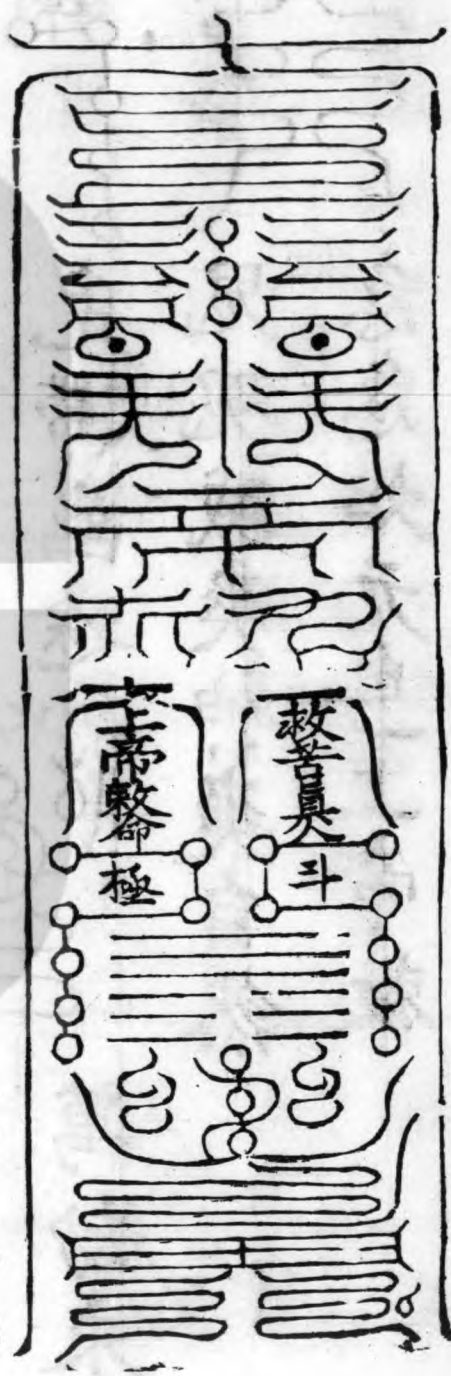 救苦真人
斗
上帝敕命
極